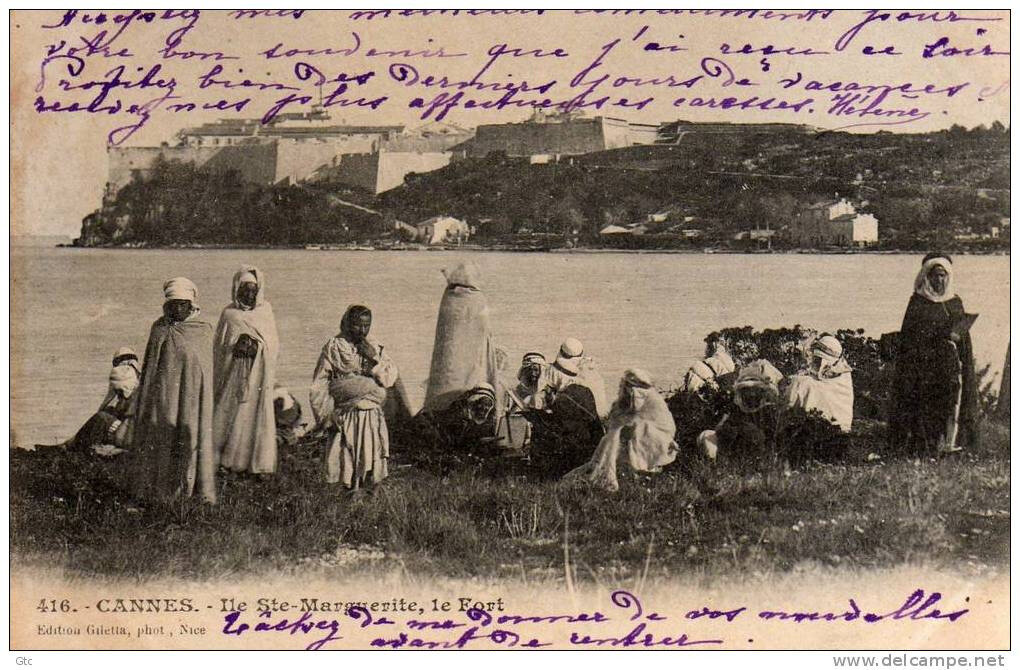 mes meilleurs
pour
vôtre bon souvenir que j'ai reçu ce soir
Profitez bien des derniers jours de vacances
mes plus affectueuses caresses. Hélène.
416. - CANNES. - Ile Ste-Marguerite, le Fort
Edition Giletta, phot, Nice
Tâchez de me donner de vos nouvelles
avant de rentrer.
Gtc
http://www.delcampe.net